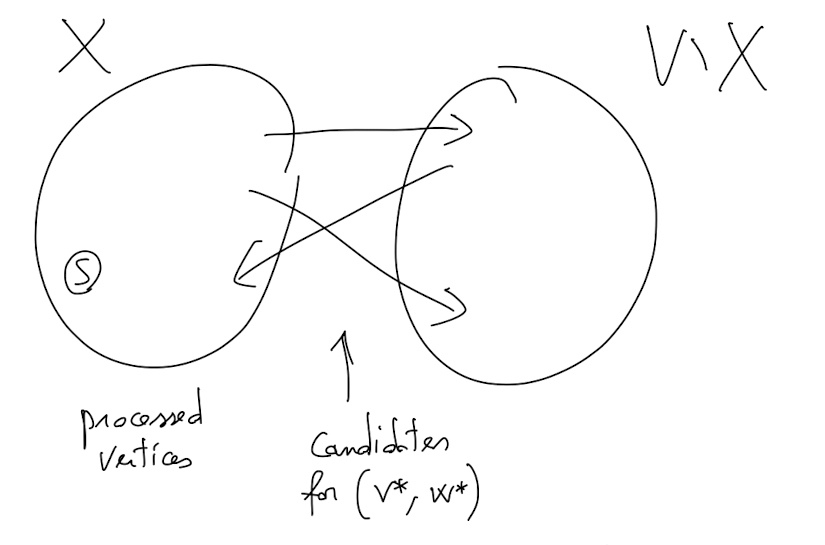 X
V \ X
S
processed
vertices
candidates
for (v*, w*)